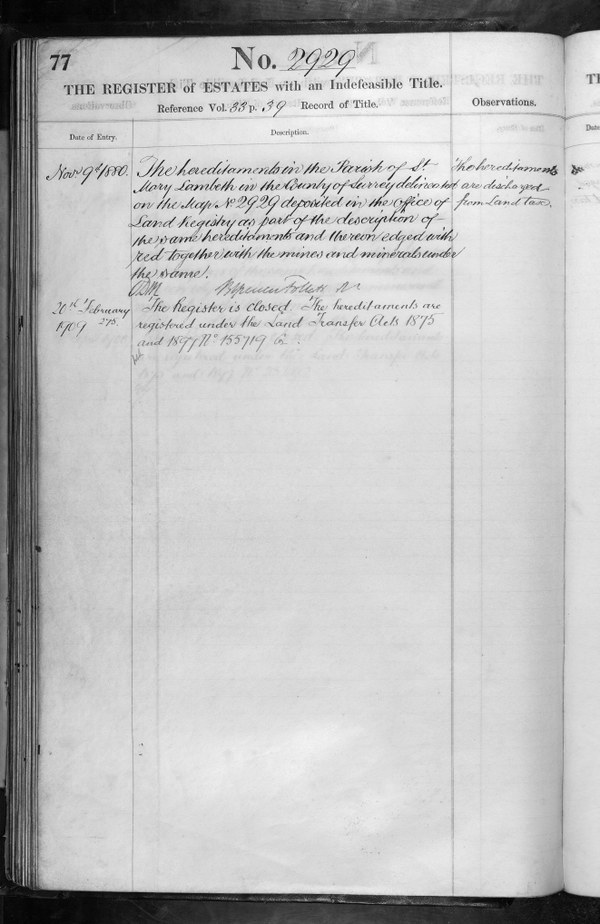 77
No. 2929
THE REGISTER of ESTATES with an Indefeasible Title.
Reference Vol. 33 p. 39 Record of Title.
Observations.
Date of Entry.
Description.
Novr 9th 1880.
The hereditaments in the Parish of St.
Mary Lambeth in the County of Surrey delineated
on the Map No 2929 deposited in the office of
Land Registry as part of the description of
the same hereditaments and thereon edged with
red together with the mines and minerals under
the same.
The hereditaments
are discharged
from Land tax.
20th February
1909
The Register is closed. The hereditaments are
registered under the Land Transfer Acts 1875
and 1897 No 155719